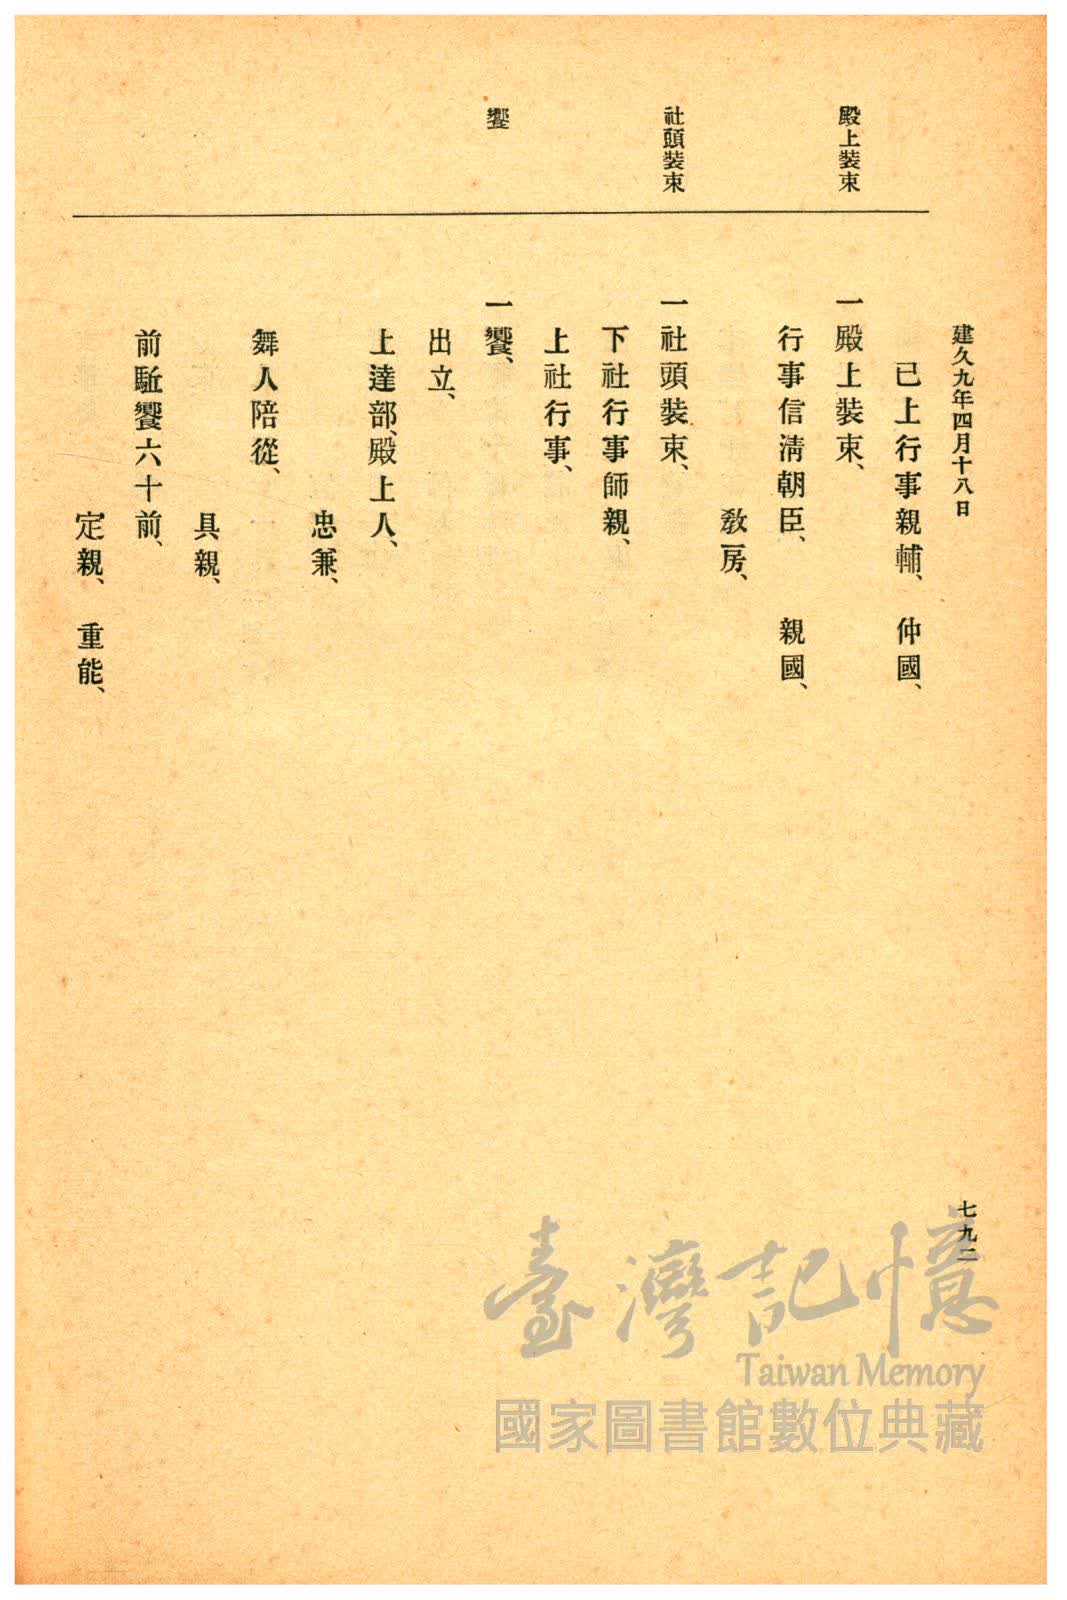 建久九年四月十八日
七九二
殿上裝束
社頭裝束
饗
已上行事親輔、仲國、
一殿上裝束、
行事信淸朝臣、親國、
敎房、
一社頭裝束、
下社行事師親、
上社行事、
一饗、
出立、
上達部、殿上人、
忠兼、
舞人陪從、
具親、
前駈饗六十前、
定親、重能、
臺灣記憶
Taiwan Memory
國家圖書館數位典藏